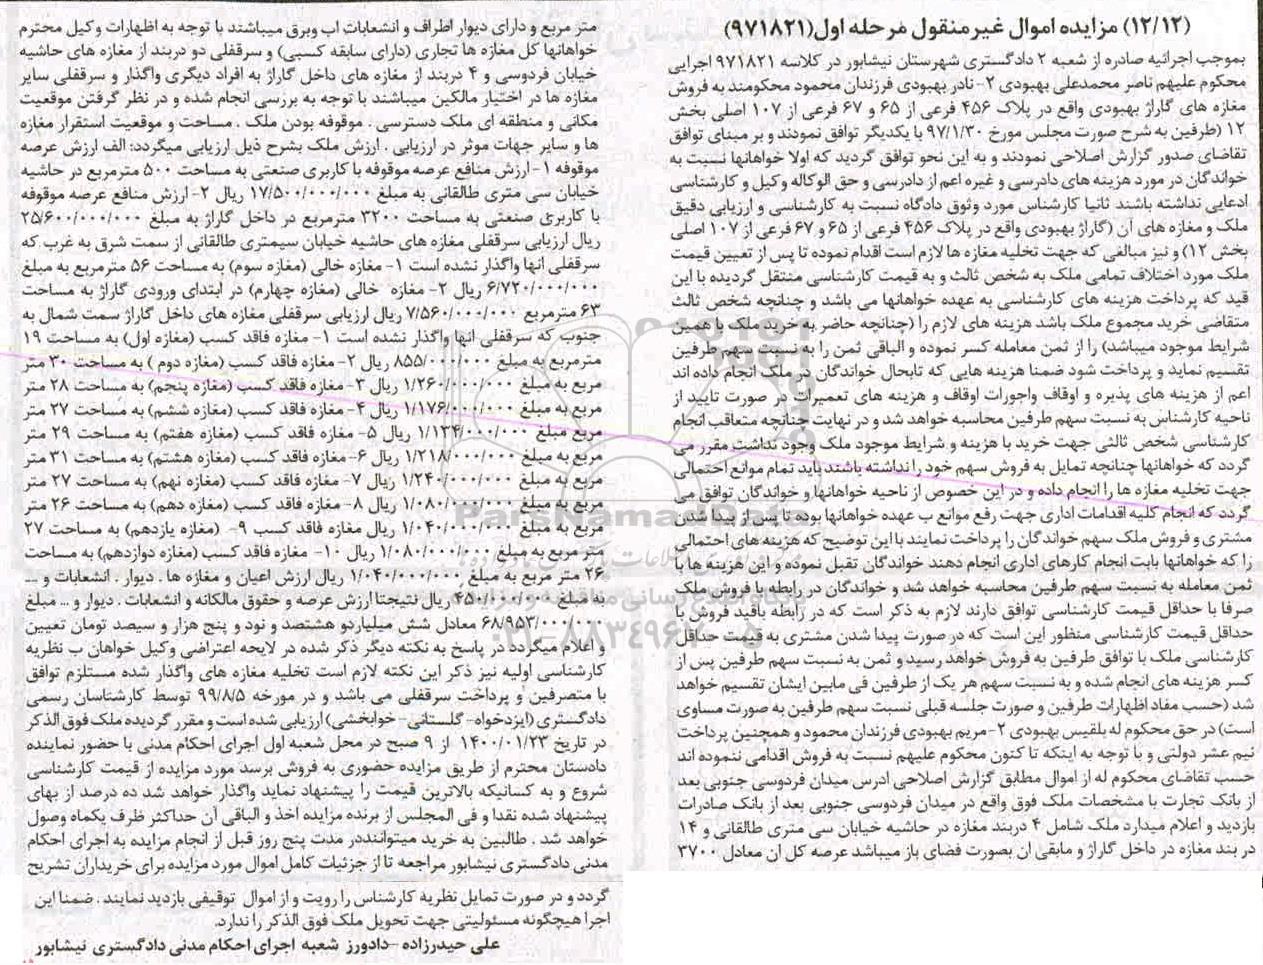 (۱۲/۱۲) مزایده اموال غیرمنقول مرحله اول(۹۷۱۸۲۱)
بموجب اجرائیه صادره از شعبه ۲ دادگستری شهرستان نیشابور در کلاسه ۹۷۱۸۲۱ اجرایی
محکوم علیهم ناصر محمدعلی بهبودی ۲- نادر بهبودی فرزندان محمود محکومند به فروش
مغازه های گاراژ بهبودی واقع در پلاک ۴۵۶ فرعی از ۶۵ و ۶۷ فرعی از ۱۰۷ اصلی بخش
۱۲ (طرفین به شرح صورت مجلس مورخ ۹۷/۱/۳۰ با یکدیگر توافق نمودند و بر مبنای توافق
تقاضای صدور گزارش اصلاحی نمودند و به این نحو توافق گردید که اولا خواهانها نسبت به
خواندگان در مورد هزینه های دادرسی و غیره اعم از دادرسی و حق الوکاله وکیل و کارشناسی
ادعایی نداشته باشند ثانیا کارشناس مورد وثوق دادگاه نسبت به کارشناسی و ارزیابی دقیق
ملک و مغازه های آن (گاراژ بهبودی واقع در پلاک ۴۵۶ فرعی از ۶۵ و ۶۷ فرعی از ۱۰۷ اصلی
بخش ۱۲) و نیز مبالغی که جهت تخلیه مغازه ها لازم است اقدام نموده تا پس از تعیین قیمت
ملک مورد اختلاف تمامی ملک به شخص ثالث و به قیمت کارشناسی منتقل گردیده با این
قید که پرداخت هزینه های کارشناسی به عهده خواهانها می باشد و چنانچه شخص ثالث
متقاضی خرید مجموع ملک باشد هزینه های لازم را (چنانچه حاضر به خرید ملک با همین
شرایط موجود میباشد) را از ثمن معامله کسر نموده و الباقی ثمن را به نسبت سهم طرفین
تقسیم نماید و پرداخت شود ضمنا هزینه هایی که تابحال خواندگان در ملک انجام داده اند
اعم از هزینه های پذیره و اوقاف واجورات اوقاف و هزینه های تعمیرات در صورت تایید از
ناحیه کارشناس به نسبت سهم طرفین محاسبه خواهد شد و در نهایت چنانچه متعاقب انجام
کارشناسی شخص ثالثی جهت خرید با هزینه و شرایط موجود ملک وجود نداشت مقرر می
گردد که خواهانها چنانچه تمایل به فروش سهم خود را نداشته باشند باید تمام موانع احتمالی
جهت تخلیه مغازه ها را انجام داده و در این خصوص از ناحیه خواهانها و خواندگان توافق می
گردد که انجام کلیه اقدامات اداری جهت رفع موانع ب عهده خواهانها بوده تا پس از پیدا شدن
مشتری و فروش ملک سهم خواندگان را پرداخت نمایند با این توضیح که هزینه های احتمالی
را که خواهانها بابت انجام کارهای اداری انجام دهند خواندگان تقبل نموده و این هزینه ها با
ثمن معامله به نسبت سهم طرفین محاسبه خواهد شد و خواندگان در رابطه با فروش ملک
صرفا با حداقل قیمت کارشناسی توافق دارند لازم به ذکر است که در رابطه باقید فروش با
حداقل قیمت کارشناسی منظور این است که در صورت پیدا شدن مشتری به قیمت حداقل
کارشناسی ملک با توافق طرفین به فروش خواهد رسید و ثمن به نسبت سهم طرفین پس از
کسر هزینه های انجام شده و به نسبت سهم هر یک از طرفین فی مابین ایشان تقسیم خواهد
شد (حسب مفاد اظهارات طرفین و صورت جلسه قبلی نسبت سهم طرفین به صورت مساوی
است) در حق محکوم له بلقیس بهبودی ۲- مریم بهبودی فرزندان محمود و همچنین پرداخت
نیم عشر دولتی و با توجه به اینکه تا کنون محکوم علیهم نسبت به فروش اقدامی ننموده اند
حسب تقاضای محکوم له از اموال مطابق گزارش اصلاحی ادرس میدان فردوسی جنوبی بعد
از بانک تجارت با مشخصات ملک فوق واقع در میدان فردوسی جنوبی بعد از بانک صادرات
بازدید و اعلام میدارد ملک شامل ۴ دربند مغازه در حاشیه خیابان سی متری طالقانی و ۱۴
در بند مغازه در داخل گاراژ و مابقی ان بصورت فضای باز میباشد عرصه کل ان معادل ۳۷۰۰
متر مربع و دارای دیوار اطراف و انشعابات اب وبرق میباشند با توجه به اظهارات وکیل محترم
خواهانها کل مغازه ها تجاری (دارای سابقه کسبی) و سرقفلی دو دربند از مغازه های حاشیه
خیابان فردوسی و ۴ دربند از مغازه های داخل گاراژ به افراد دیگری واگذار و سرقفلی سایر
مغازه ها در اختیار مالکین میباشند با توجه به بررسی انجام شده و در نظر گرفتن موقعیت
مکانی و منطقه ای ملک دسترسی . موقوفه بودن ملک . مساحت و موقعیت استقرار مغازه
ها و سایر جهات موثر در ارزیابی . ارزش ملک بشرح ذیل ارزیابی میگردد: الف ارزش عرصه
موقوفه ۱- ارزش منافع عرصه موقوفه با کاربری صنعتی به مساحت ۵۰۰ مترمربع در حاشیه
خیابان سی متری طالقانی به مبلغ ۱۷/۵۰۰/۰۰۰/۰۰۰ ریال ۲- ارزش منافع عرصه موقوفه
با کاربری صنعتی به مساحت ۳۲۰۰ مترمربع در داخل گاراژ به مبلغ ۲۵/۶۰۰/۰۰۰/۰۰۰
ریال ارزیابی سرقفلی مغازه های حاشیه خیابان سیمتری طالقانی از سمت شرق به غرب که
سرقفلی آنها واگذار نشده است ۱- مغازه خالی (مغازه سوم) به مساحت ۵۶ مترمربع به مبلغ
۶/۷۲۰/۰۰۰/۰۰۰ ریال ۲- مغازه خالی (مغازه چهارم) در ابتدای ورودی گاراژ به مساحت
۶۳ مترمربع ۷/۵۶۰/۰۰۰/۰۰۰ ریال ارزیابی سرقفلی مغازه های داخل گاراژ سمت شمال به
جنوب که سرقفلی آنها واگذار نشده است ۱- مغازه فاقد کسب (مغازه اول) به مساحت ۱۹
مترمربع به مبلغ ۸۵۵/۰۰۰/۰۰۰ ریال ۲- مغازه فاقد کسب (مغازه دوم ) به مساحت ۳۰ متر
مربع به مبلغ ۱/۲۶۰/۰۰۰/۰۰۰ ریال ۳- مغازه فاقد کسب (مغازه پنجم) به مساحت ۲۸ متر
مربع به مبلغ ۱/۱۷۶/۰۰۰/۰۰۰ ریال ۴- مغازه فاقد کسب (مغازه ششم) به مساحت ۲۷ متر
مربع مبلغ ۱/۱۳۴/۰۰۰/۰۰۰ ریال ۵- مغازه فاقد کسب (مغازه هفتم) به مساحت ۲۹ متر
مربع به مبلغ ۱/۲۱۸/۰۰۰/۰۰۰ ریال ۶- مغازه فاقد کسب (مغازه هشتم) به مساحت ۳۱ متر
مربع به مبلغ ۱/۲۴۰/۰۰۰/۰۰۰ ریال ۷- مغازه فاقد کسب (مغازه نهم) به مساحت ۲۷ متر
مربع به مبلغ ۱/۰۸۰/۰۰۰/۰۰۰ ریال ۸- مغازه فاقد کسب (مغازه دهم) به مساحت ۲۶ متر
مربع به مبلغ ۱/۰۴۰/۰۰۰/۰۰۰ ریال مغازه فاقد کسب ۹- (مغازه یازدهم) به مساحت ۲۷
متر مربع به مبلغ ۱/۰۸۰/۰۰۰/۰۰۰ ریال ۱۰- مغازه فاقد کسب (مغازه دوازدهم) به مساحت
۲۶ متر مربع به مبلغ ۱/۰۴۰/۰۰۰/۰۰۰ ریال ارزش اعیان و مغازه ها . دیوار . انشعابات و ...
به مبلغ ۴۵۰/۰۰۰/۰۰۰ ریال نتیجتا ارزش عرصه و حقوق مالکانه و انشعابات . دیوار و ... مبلغ
۶۸/۹۵۳/۰۰۰/۰۰۰ معادل شش میلیاردو هشتصد و نود و پنج هزار و سیصد تومان تعیین
و اعلام میگردد در پاسخ به نکته دیگر ذکر شده در لایحه اعتراضی وکیل خواهان ب نظریه
کارشناسی اولیه نیز ذکر این نکته لازم است تخلیه مغازه های واگذار شده مستلزم توافق
با متصرفین و پرداخت سرقفلی می باشد و در مورخه ۹۹/۸/۵ توسط کارشناسان رسمی
دادگستری (ایزدخواه- گلستانی- خوابخشی) ارزیابی شده است و مقرر گردیده ملک فوق الذکر
در تاریخ ۱۴۰۰/۰۱/۲۳ از ۹ صبح در محل شعبه اول اجرای احکام مدنی با حضور نماینده
دادستان محترم از طریق مزایده حضوری به فروش برسد مورد مزایده از قیمت کارشناسی
شروع و به کسانیکه بالاترین قیمت را پیشنهاد نماید واگذار خواهد شد ده درصد از بهای
پیشنهاد شده نقدا و فی المجلس از برنده مزایده اخذ و الباقی آن حداکثر ظرف یکماه وصول
خواهد شد . طالبین به خرید میتواننددر مدت پنج روز قبل از انجام مزایده به اجرای احکام
مدنی دادگستری نیشابور مراجعه تا از جزئیات کامل اموال مورد مزایده برای خریداران تشریح
گردد و در صورت تمایل نظریه کارشناس را رویت و از اموال توقیفی بازدید نمایند . ضمنا این
اجرا هیچگونه مسئولیتی جهت تحویل ملک فوق الذکر را ندارد.
علی حیدرزاده -دادورز شعبه اجرای احکام مدنی دادگستری نیشابور
ParsNamadData